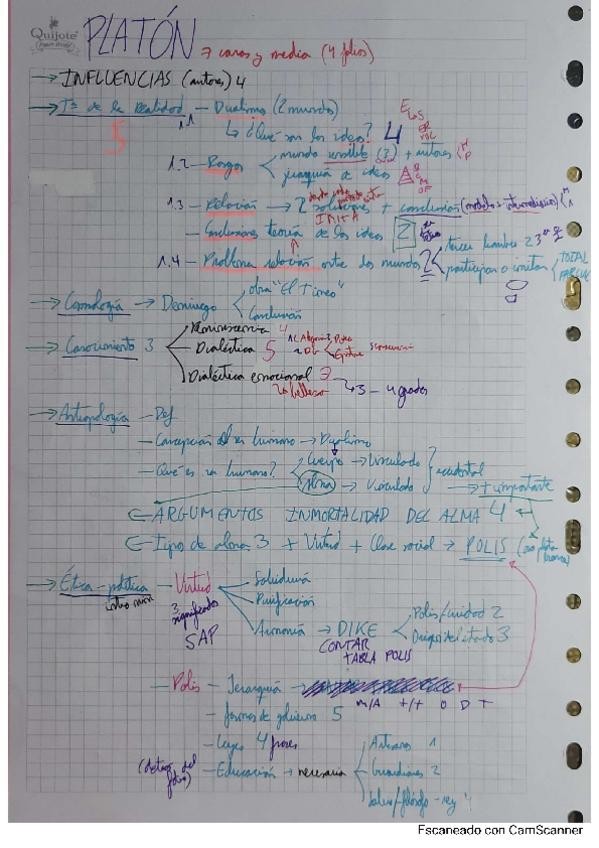 Quijote
PLATÓN 7 caras y media (4 folios)
→ INFLUENCIAS (autores) 4
→ Tª de la realidad — Dualismo (2 mundos)
5
1.1 ↳ ¿Qué son las ideas? 4
1.2 — Rasgos < mundo sensible (2) + autores
jerarquía de ideas
1.3 — Relación → 2 soluciones + conclusión
IMITA
— Conclusiones teoría de las ideas 2
1.4 — Problema relación entre dos mundos 2 < tercer hombre
participan o imitan < TOTAL
→ Cosmología → Demiurgo < obra "El Timeo"
Conclusión
→ Conocimiento 3 Reminiscencia 4
Dialéctica 5
Dialéctica emocional 3 → 3 — 4 grados
↳ belleza
→ Antropología — Def
— Concepción del ser humano → Dualismo
— Qué es ser humano? < Cuerpo → Vinculado } accidental
Alma → Vinculado → + importante
← ARGUMENTOS INMORTALIDAD DEL ALMA 4
← Tipos de alma 3 + Virtud + Clase social → POLIS
→ Ética-política — Virtud Sabiduría
Purificación
3 significados
SAP
Armonía → DIKE < Polis/unidad 2
CONTAR TABLA POLIS
— Polis — Jerarquía →
m/A +/+ O D T
— formas de gobierno 5
— Leyes 4 frases
(detrás del folio) — Educación → necesaria Artesanos 1
Guardianes 2
Sabio/filósofo-rey
Escaneado con CamScanner